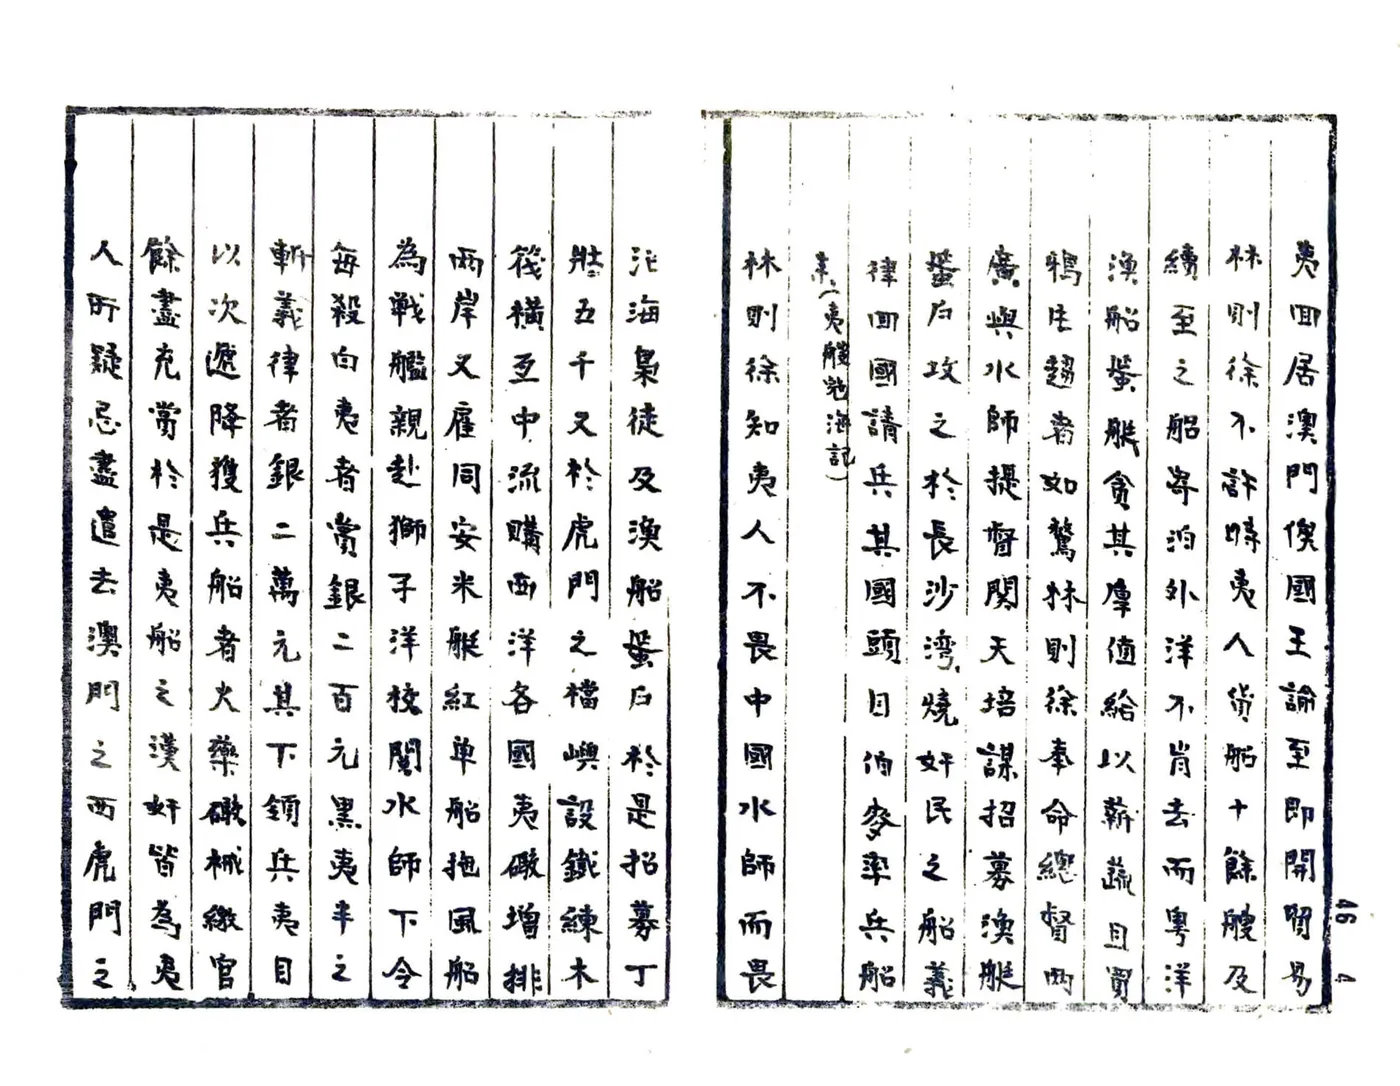 夷回居澳門俟國王諭至即開貿易
林則徐不許時夷人貨船十餘艘及
續至之船寄泊外洋不肯去而粵洋
漁船蜑艇貪其厚值給以薪蔬且買
鴉片趨者如鶩林則徐奉命總督兩
廣與水師提督関天培謀招募漁艇
蜑戶攻之於長沙湾燒奸民之船義
律回國請兵其國頭目伯麥率兵船
來（夷艘寇海記）
林則徐知夷人不畏中國水師而畏
沿海梟徒及漁船蜑戶於是招募丁
壯五千又於虎門之檔嶼設鐵練木
筏橫亙中流購西洋各國夷礮增排
兩岸又雇同安米艇紅单船拖風船
為戰艦親赴獅子洋校閱水師下令
每殺白夷者賞銀二百元黑夷半之
斬義律者銀二萬元其下領兵夷目
以次遞降獲兵船者火藥礮械繳官
餘盡充賞於是夷船之漢奸皆為夷
人所疑忌盡遣去澳門之西虎門之
46
4